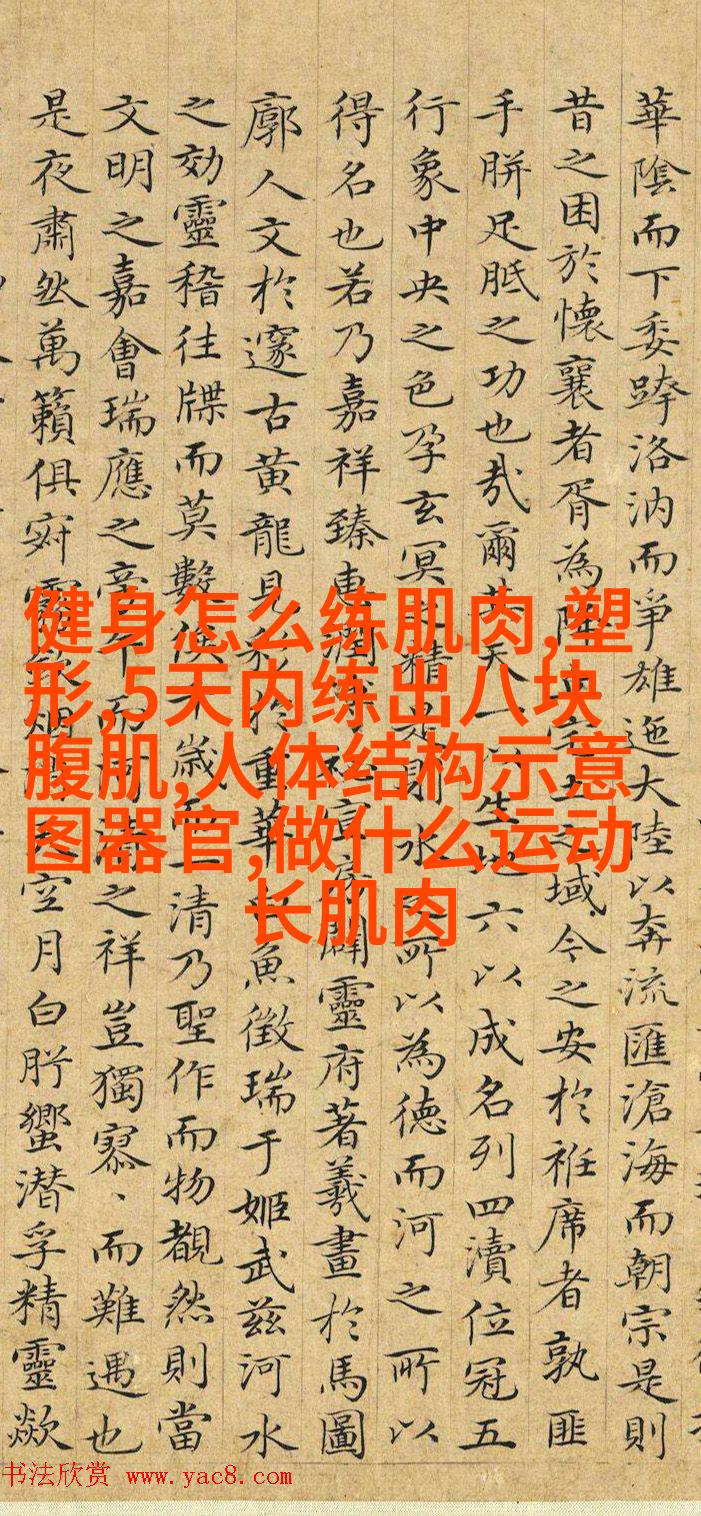 健身怎么练肌肉,塑
形,5天内练出八块
腹肌,人体结构示意
图器官,做什么运动
长肌肉
華陰而下委跨洛汭而爭雄迤大陸以奔流匯滄海而朝宗是則
昔之困於懷襄者胥為陸土之域今之安於袵席者孰匪
手胼足胝之功也哉爾其天一以生地六以成名列四瀆位冠五
行象中央之色孕玄冥之精是則水之所以為德而河之所以
得名也若乃嘉祥臻惠潤宣房闢靈府著羲畫於馬圖
廓人文於邃古黃龍見於重華白魚徵瑞于姬武茲河水
之効靈稽往牒而莫數俟千歲而一清乃聖作而物覩然則當
文明之嘉會瑞應之旁午而河清之祥豈獨寥、而難遇也
是夜肅然萬籟俱寂露烟天空月白肸蠁潛孚精靈歘
书法欣赏 www.yac8.com